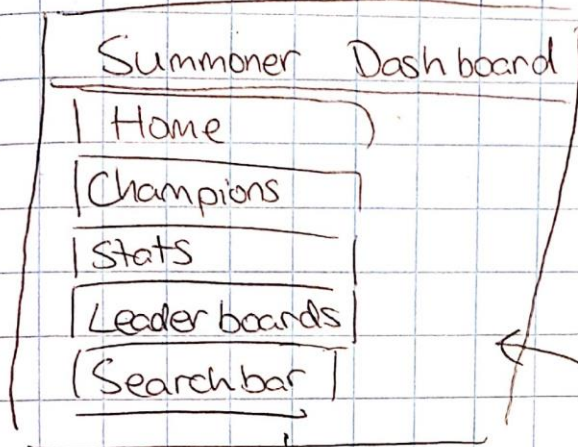 Summoner Dashboard
Home
Champions
Stats
Leaderboards
Searchbar